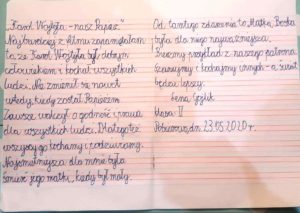 "Karol Wojtyła - nasz Papież"
Najbardziej z filmu zapamiętałam
to, że Karol Wojtyła był dobrym
człowiekiem i kochał wszystkich
ludzi. Nie zmienił się nawet
wtedy, kiedy został Papieżem.
Zawsze walczył o godność i prawa
dla wszystkich ludzi. Dlatego też
wszyscy go kochamy i podziwiamy.
Najsmutniejsza dla mnie była
śmierć jego matki, kiedy był mały.
Od tamtego zdarzenia to Matka Boska
była dla niego najważniejsza.
Bierzmy przykład z naszego patrona
szanujmy i kochajmy innych - a świat
będzie lepszy.
Lena
klasa II
23.05.2020 r.